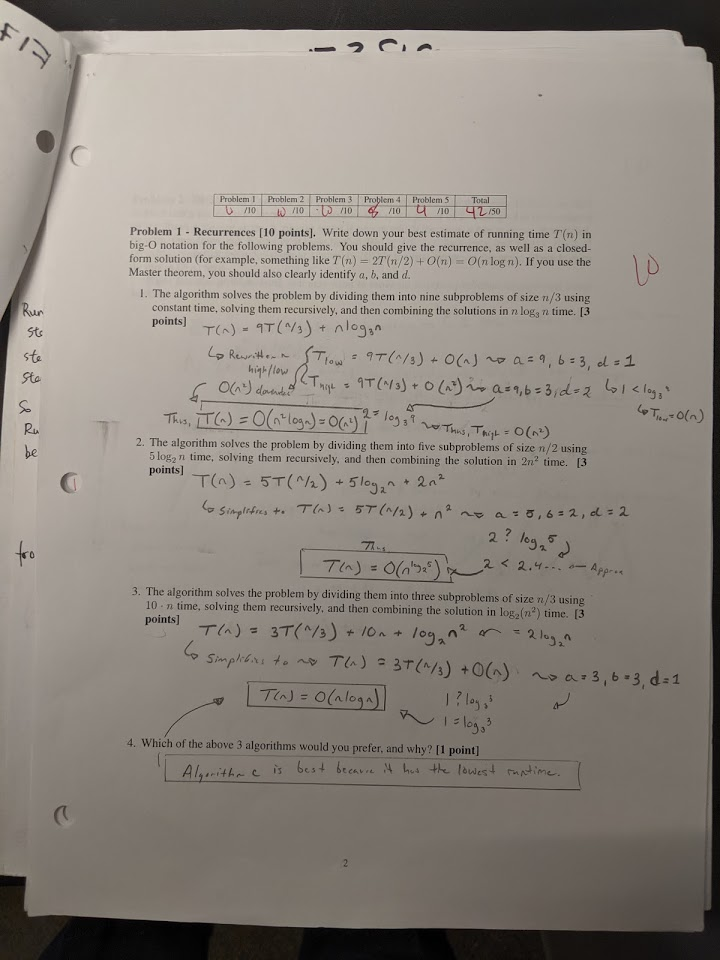 F17
Problem 1 Problem 2 Problem 3 Problem 4 Problem 5 Total
/10 10 /10 10 /10 8 /10 4 /10 42 /50
Problem 1 - Recurrences [10 points]. Write down your best estimate of running time T(n) in
big-O notation for the following problems. You should give the recurrence, as well as a closed-
form solution (for example, something like T(n) = 2T(n/2) + O(n) = O(n log n). If you use the
Master theorem, you should also clearly identify a, b, and d.
10
1. The algorithm solves the problem by dividing them into nine subproblems of size n/3 using
constant time, solving them recursively, and then combining the solutions in n log₃ n time. [3
points]
T(n) = 9T(n/3) + nlog₃n
↳ Rewritten high/low { T low = 9T(n/3) + O(n) ~> a=9, b=3, d=1
T high = 9T(n/3) + O(n²) ~> a=9, b=3, d=2 ↳ 1 < log₃9
O(n²)
Thus, T(n) = O(n²logn) = O(n²) 2 = log₃9 ~> Thus, T high = O(n²) ↳ T low = O(n)
2. The algorithm solves the problem by dividing them into five subproblems of size n/2 using
5 log₂ n time, solving them recursively, and then combining the solution in 2n² time. [3
points]
T(n) = 5T(n/2) + 5log₂n + 2n²
↳ Simplifies to T(n) = 5T(n/2) + n² ~> a=5, b=2, d=2
2 ? log₂5
Thus
T(n) = O(n^log₂5) 2 < 2.4... ← Approx
3. The algorithm solves the problem by dividing them into three subproblems of size n/3 using
10 · n time, solving them recursively, and then combining the solution in log₂(n²) time. [3
points]
T(n) = 3T(n/3) + 10n + log₂n² = 2log₂n
↳ Simplifies to ~> T(n) = 3T(n/3) + O(n) ~> a=3, b=3, d=1
T(n) = O(nlogn) 1 ? log₃3
1 = log₃3
4. Which of the above 3 algorithms would you prefer, and why? [1 point]
Algorithm c is best because it has the lowest runtime.
2
Run
ste
ste
So
Ru
be